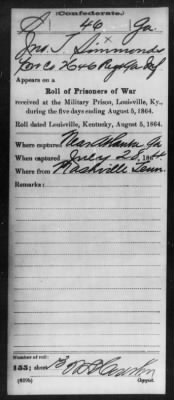 (Confederate.)
S 46 Ga.
Jno. T. Simmonds
Co. K 46 Reg. Ga. Inf
Appears on a
Roll of Prisoners of War
received at the Military Prison, Louisville, Ky.,
during the five days ending August 5, 1864.
Roll dated Louisville, Kentucky, August 5, 1864.
Where captured Near Atlanta Ga
When captured July 28, 1864
Where from Nashville Tenn.
Remarks:
Number of roll:
155; sheet
(639b) Copyist.